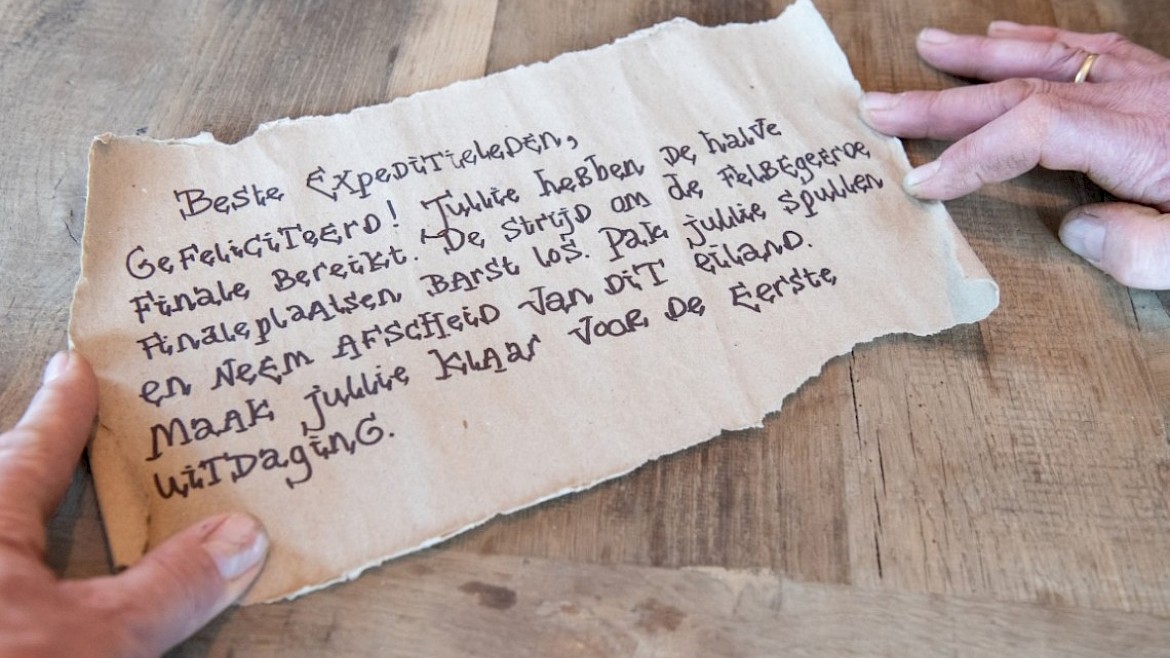 Beste Expeditieleden,
Gefeliciteerd! Jullie hebben de halve
finale bereikt. De strijd om de felbegeerde
finaleplaatsen barst los. Pak jullie spullen
en neem afscheid van dit eiland.
Maak jullie klaar voor de eerste
uitdaging.